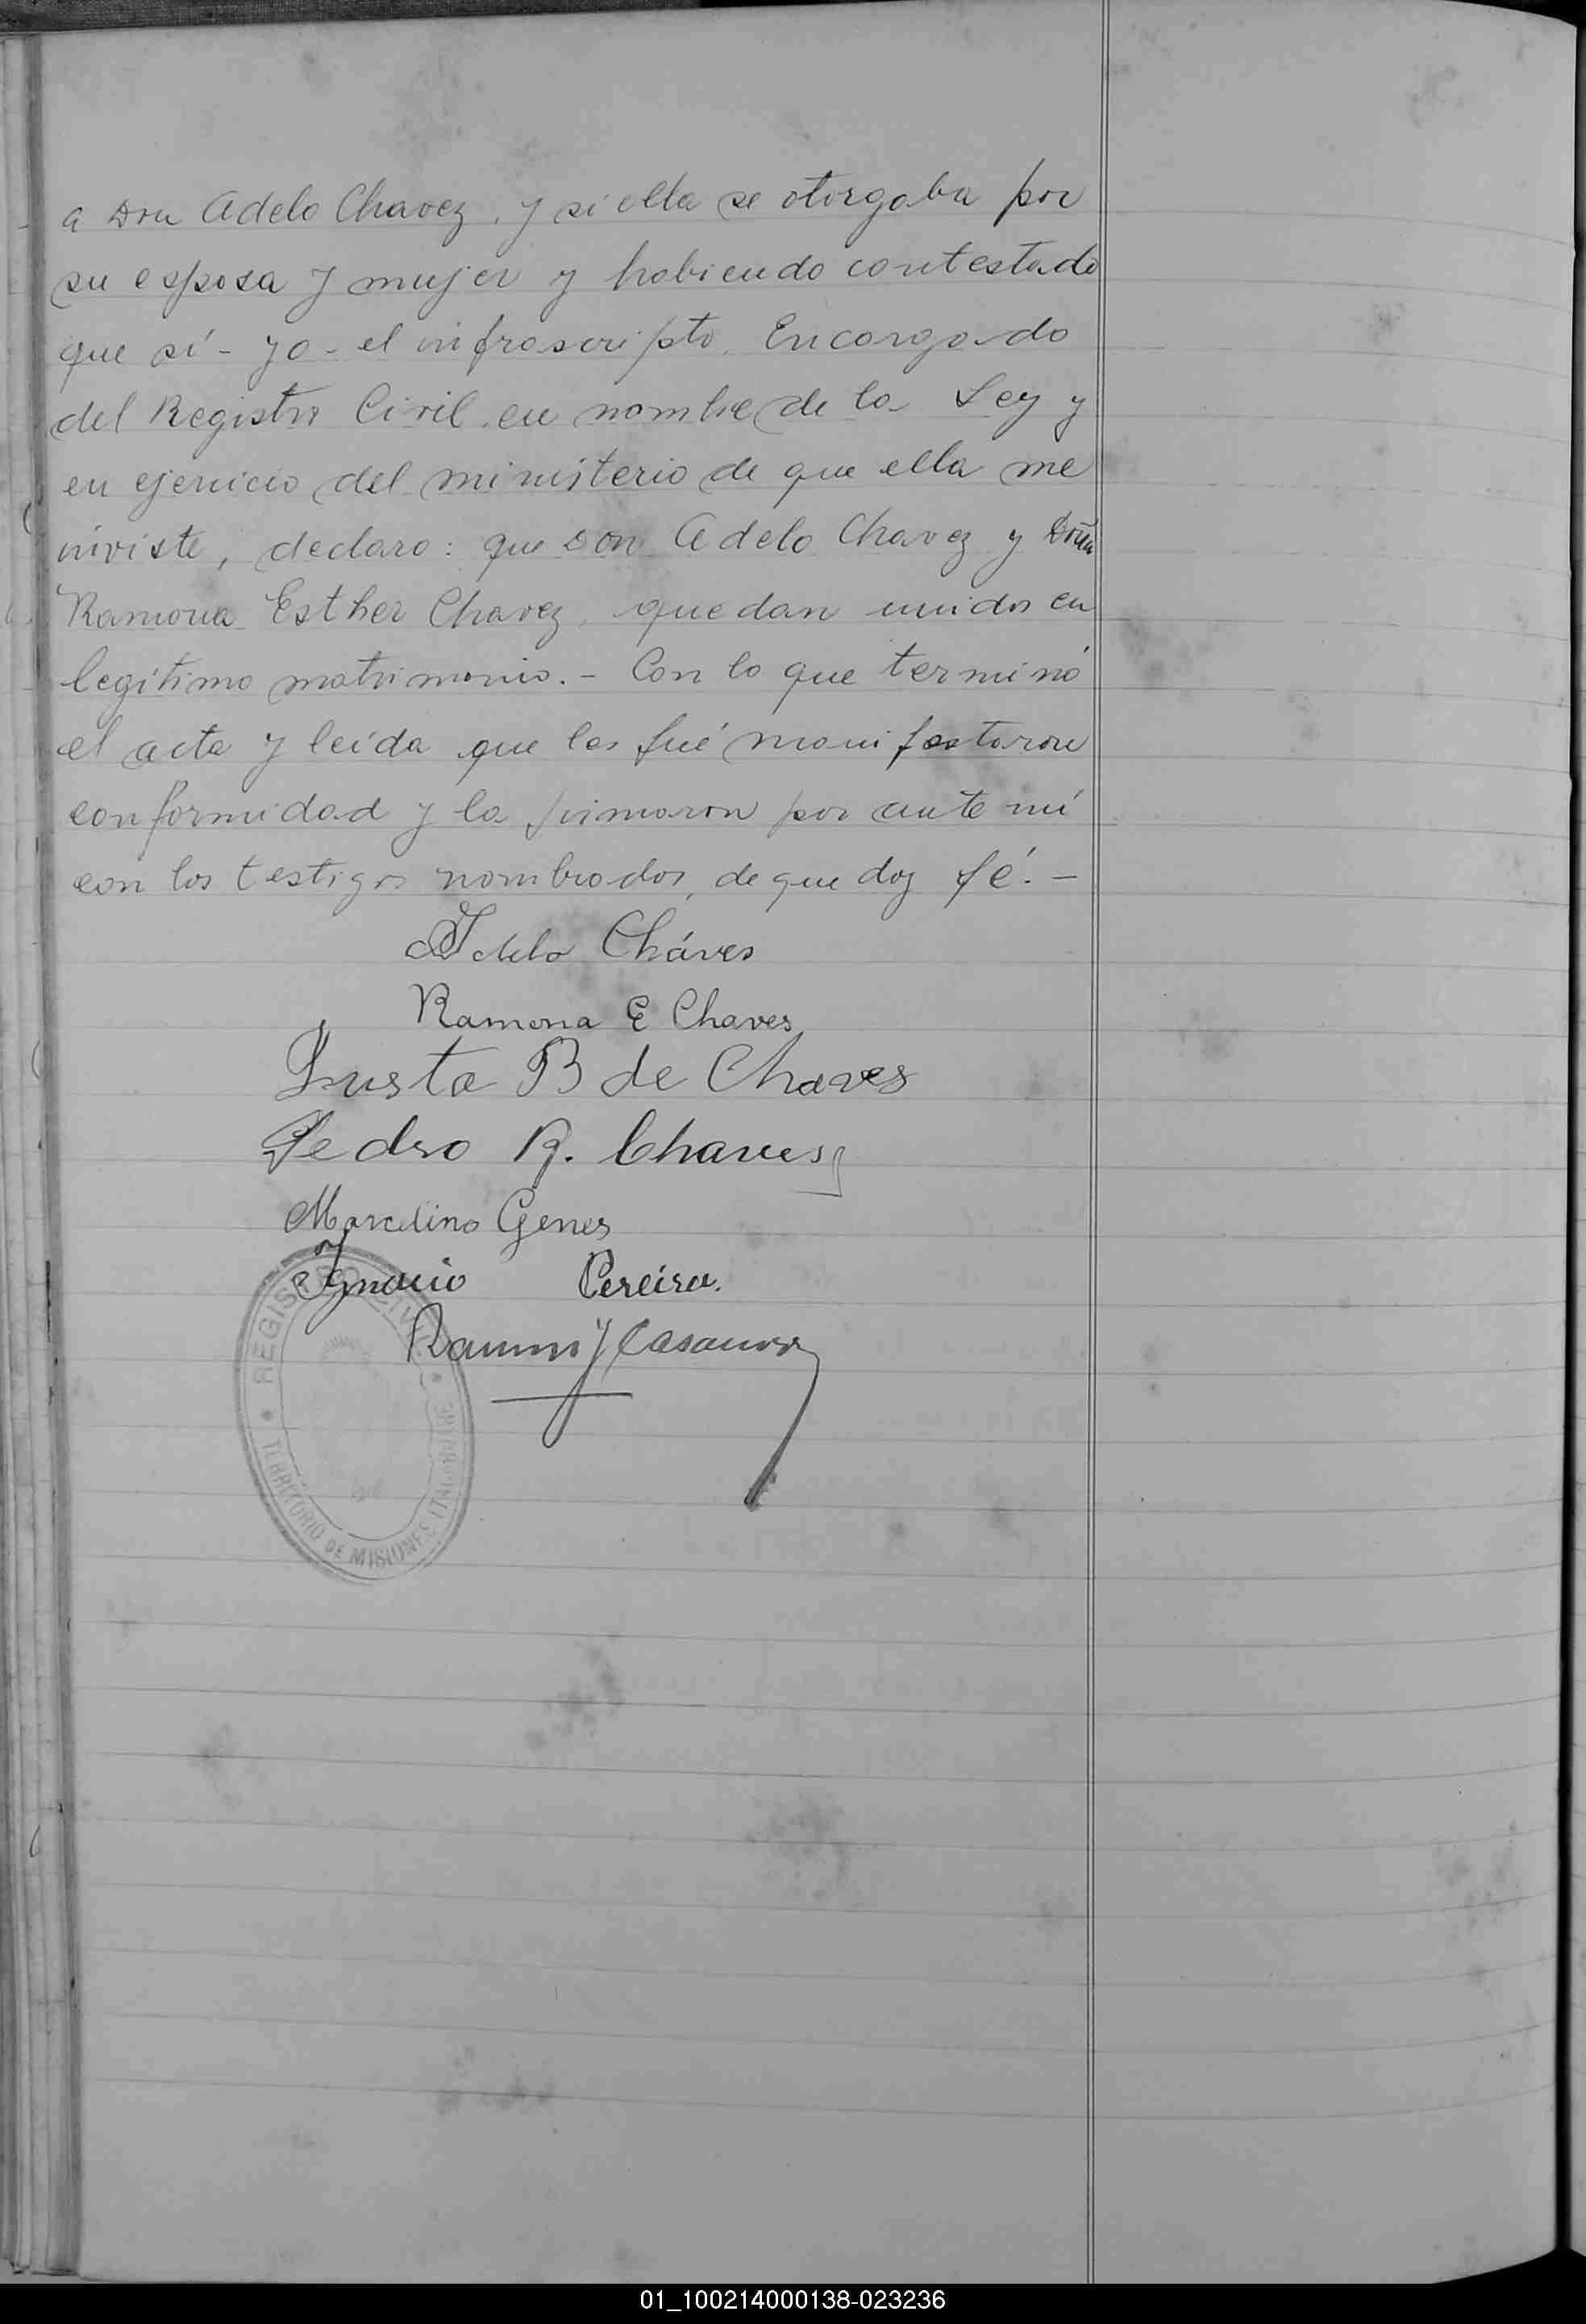 a Don Adelo Chavez, y si ella se otorgaba por
su esposa y mujer y habiendo contestado
que sí - yo - el infrascripto, Encargado
del Registro Civil, en nombre de la Ley y
en ejercicio del ministerio de que ella me
inviste, declaro: que Don Adelo Chavez y Doña
Ramona Esther Chavez, quedan unidos en
legítimo matrimonio. - Con lo que terminó
el acta y leída que les fué manifestaron
conformidad y la firmaron por ante mí
con los testigos nombrados, de que doy fé. -
Adelo Cháves
Ramona E Chaves
Justa B de Chaves
Pedro R. Chaves
Marcelino Genes
Ignacio Pereira.
Ramon J Casanova
REGISTRO CIVIL
TERRITORIO DE MISIONES
01_100214000138-023236